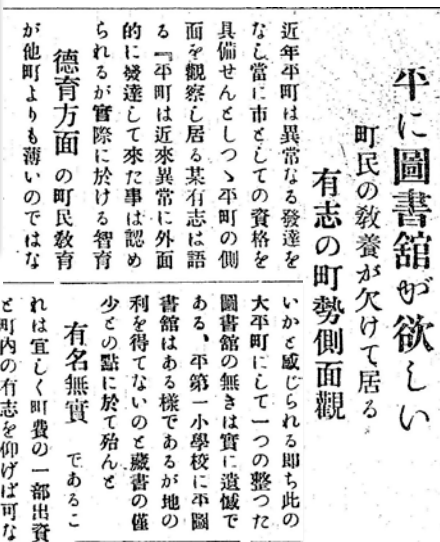 平に圖書舘が欲しい
町民の教養が欠けて居る
有志の町勢側面觀
近年平町は異常なる發達を
なし當に市としての資格を
具備せんとしつゝ平町の側
面を觀察し居る某有志は語
る『平町は近來異常に外面
的に發達して來た事は認め
られるが實際に於ける智育
德育方面の町民敎育
が他町よりも薄いのではな
いかと感じられる卽ち此の
大平町にして一つの整つた
圖書舘の無きは實に遺憾で
ある、平第一小學校に平圖
書舘はある樣であるが地の
利を得てないのと藏書の僅
少との點に於て殆んと
有名無實であるこ
れは宜しく町費の一部出資
と町内の有志を仰げば可な